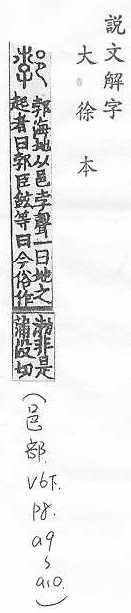 說文解字
大徐本
郣
郣海地从邑孛聲一曰地之
起者曰郣臣鉉等曰今俗作
渤非是
蒲没切
(邑部. V6下. P8. a9~a10.)